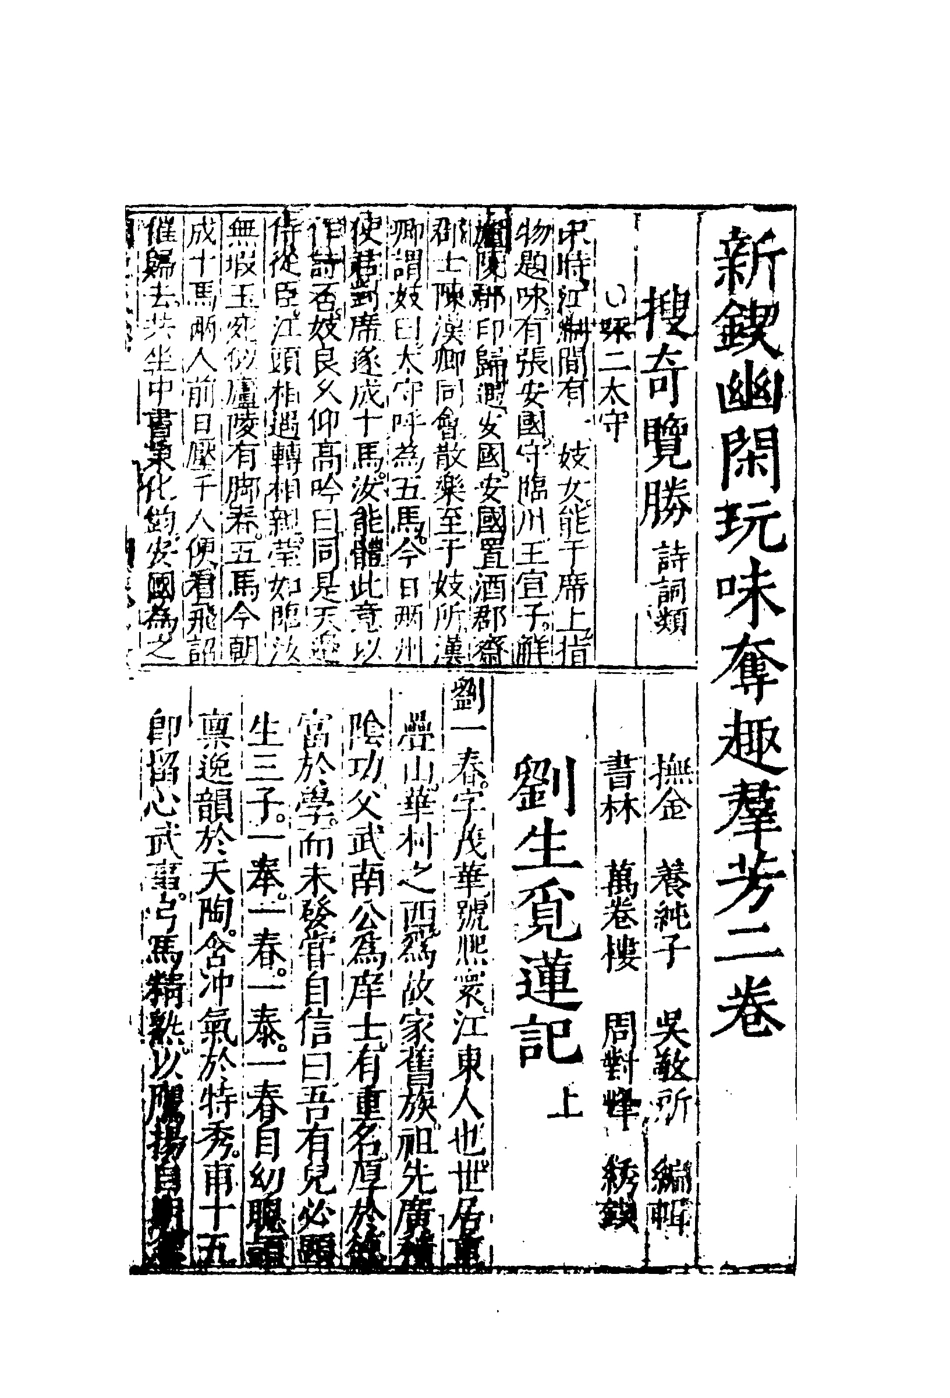 新鍥幽閑玩味奪趣羣芳二卷
搜奇覽勝 詩詞類
二太守
宋時江湖間有一妓女能于席上指
物題咏有張安國守臨川王宣子解
廬陵郡印歸過安國安國置酒郡齋
郡士陳漢卿同會散樂至于妓所漢
卿謂妓曰太守呼為五馬今日兩州
使君對席遂成十馬汝能體此意以
作詩否妓良久仰高吟曰同是天邊
侍從臣江頭相遇轉相親瑩如臨汝
無瑕玉宛似廬陵有脚春五馬今朝
成十馬兩人前日壓千人便看飛詔
催歸去共坐中書秉化鈞安國為之
撫金 養純子 吳敬所 編輯
書林 萬卷樓 周對峰 綉鍥
劉生覓蓮記 上
劉一春字茂華號熙寰江東人也世居
疊山華村之西為故家舊族祖先廣積
陰功父武南公為庠士有重名厚於
富於學而未發嘗自信曰吾有兒必顯
生三子一奉一春一泰一春自幼聰
禀逸韻於天陶含冲氣於特秀甫十五
即留心武事弓馬精熟以鷹揚自期